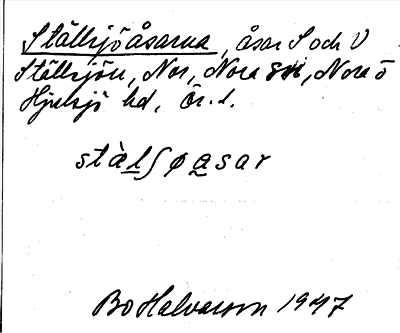 Ställsjöåsarna, åsar S och V
Ställsjön, Nor, Nora sn, Nora o
Hjulsjö hd, Ör. l.
stàlʃøasar
Bo Halvarson 1947